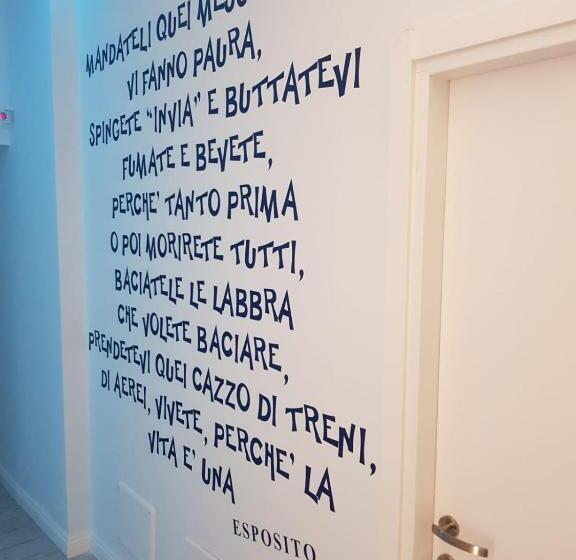 MANDATELI QUEI
VI FANNO PAURA,
SPINGETE "INVIA" E BUTTATEVI
FUMATE E BEVETE,
PERCHE' TANTO PRIMA
O POI MORIRETE TUTTI,
BACIATELE LE LABBRA
CHE VOLETE BACIARE,
PRENDETEVI QUEI CAZZO DI TRENI,
DI AEREI, VIVETE, PERCHE' LA
VITA E' UNA
ESPOSITO